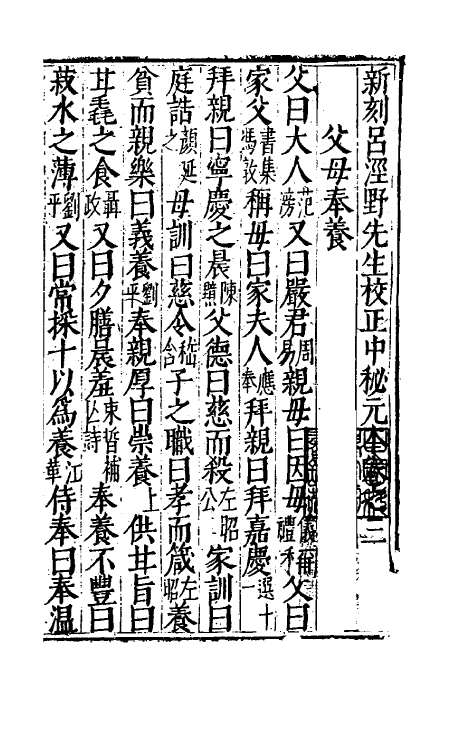 新刻呂涇野先生校正中秘元本卷之二
父母奉養
父曰大人范滂又曰嚴君周易親母曰因母儀禮父曰
家父書集馮敦稱母曰家夫人應奉拜親曰拜嘉慶選十一
拜親曰寧慶之晨陳賙父德曰慈而殺左昭公家訓曰
庭誥顏延之母訓曰慈令嵇含子之職曰孝而箴左昭養
貧而親樂曰義養劉平奉親厚曰崇養上供甘旨曰
甘毳之食聶政又曰夕膳晨羞束皙補亡詩奉養不豐曰
菽水之薄劉平又曰常採十以爲養江華侍奉曰奉溫